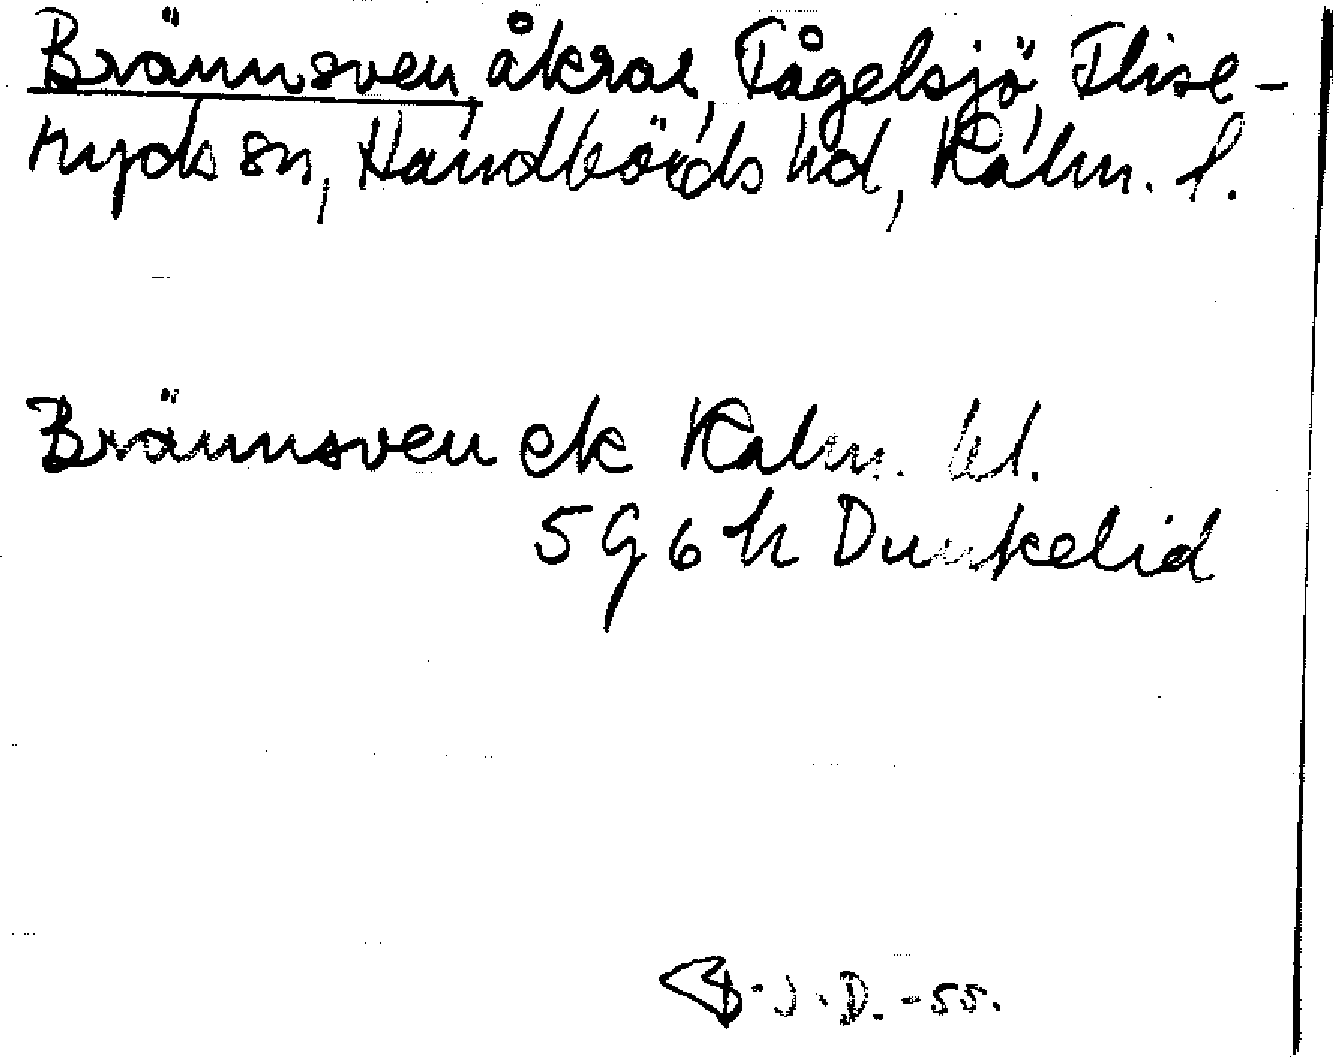 Brännsven, åkrar, Fågelsjö, Flise-
ryds sn, Handbörds hd, Kalm. l.
Brännsven ek Kalm. ld.
596 h Dunkelid
B.J.D. -55.